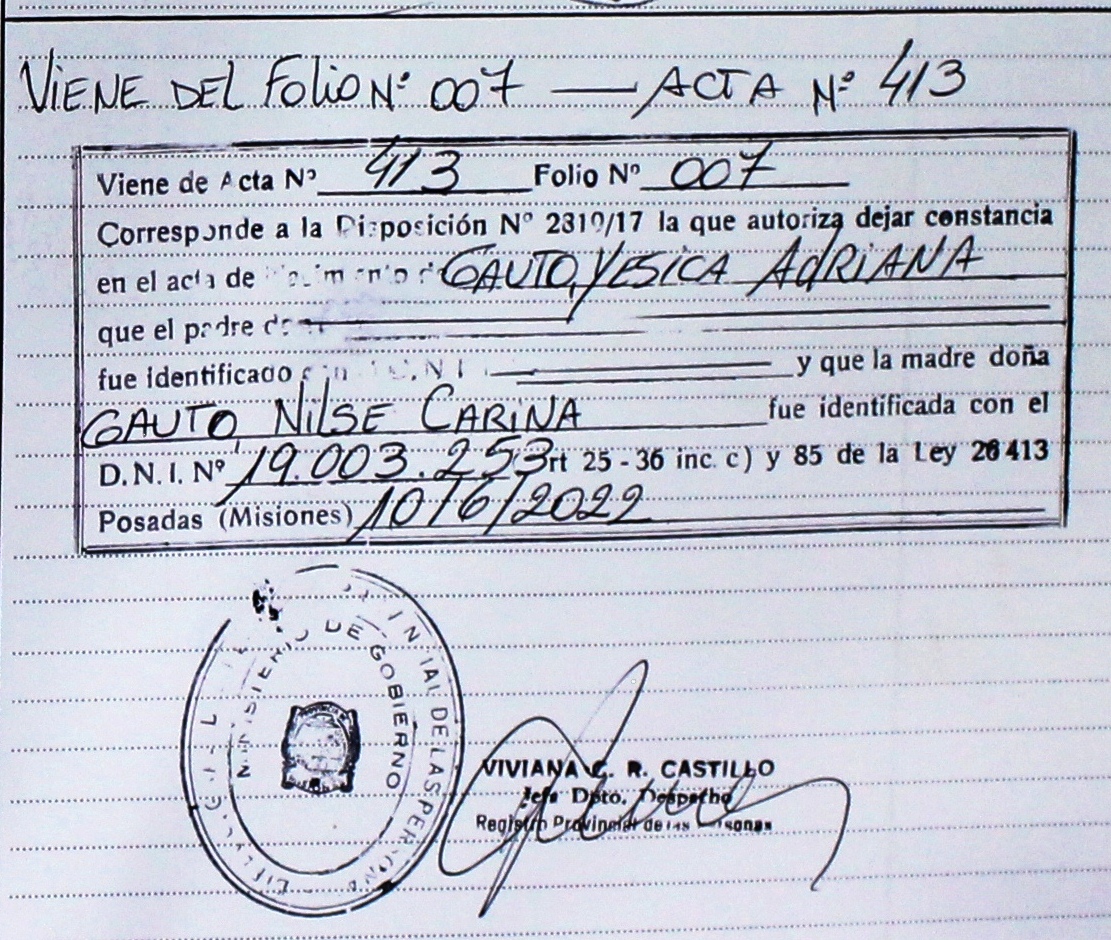 VIENE DEL FOLIO Nº 007 — ACTA Nº 413
Viene de Acta Nº 413 Folio Nº 007
Corresponde a la Disposición Nº 2310/17 la que autoriza dejar constancia
en el acta de GAUTO, YESICA ADRIANA
que el padre
fue identificado D.N.I. y que la madre doña
GAUTO, NILSE CARINA fue identificada con el
D.N.I. Nº 19.003.253 Art 25 - 36 inc. c) y 85 de la Ley 26413
Posadas (Misiones) 10/6/2022
MINISTERIO DE GOBIERNO
DE LAS PERSONAS
VIVIANA C. R. CASTILLO
Jefe Dpto. Despacho
Registro Provincial de las Personas